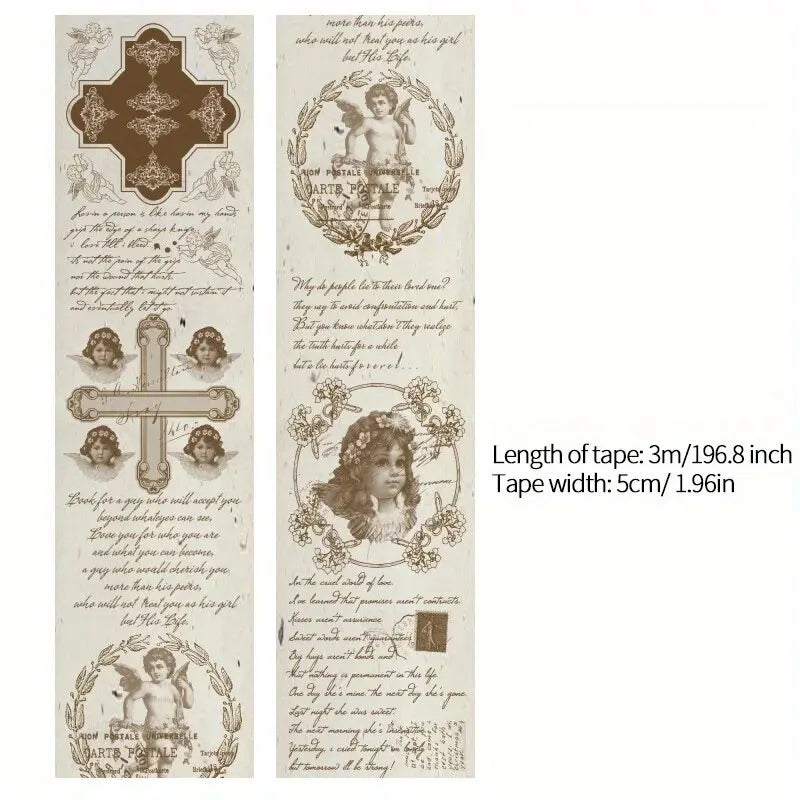 Lovin a person is like havin my hands
grip the edge of a sharp knife
i love till i bleed
its not the pain of the grip
nor the wound that hurts
but the fact that i might not sustain it
and eventually let it go.
Look for a guy who will accept you
beyond whateyes can see,
Love you for who you are
and what you can become,
a guy who would cherish you
more than his peers,
who will not treat you as his girl
but His Life.
UNION POSTALE UNIVERSELLE
CARTE POSTALE
more than his peers,
who will not treat you as his girl
but His Life.
UNION POSTALE UNIVERSELLE
CARTE POSTALE
Why do people lie to their loved one?
they say to avoid confrontation and hurt,
But you know what,don't they realize
the truth hurts for a while
but a lie hurts forever!...
In the cruel world of love.
I've learned that promises aren't contracts.
Kisses aren't assurance
Sweet words aren't guarantees
Big hugs aren't bonds and
that nothing is permanent in this life
One day she's mine. the next day she's gone.
Last night she was sweet.
The next morning she's
Yesterday, i cried tonight im lonely
but tomorrow ill be strong!
Length of tape: 3m/196.8 inch
Tape width: 5cm/ 1.96in